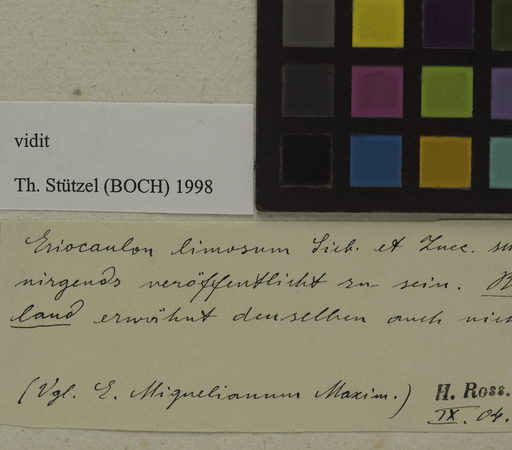 vidit
Th. Stützel (BOCH) 1998
Eriocaulon limosum Sieb. et Zucc.
nirgends veröffentlicht zu sein.
land erwähnt denselben auch
(Vgl. E. Miquelianum Maxim.)
H. Ross.
IX. 04.